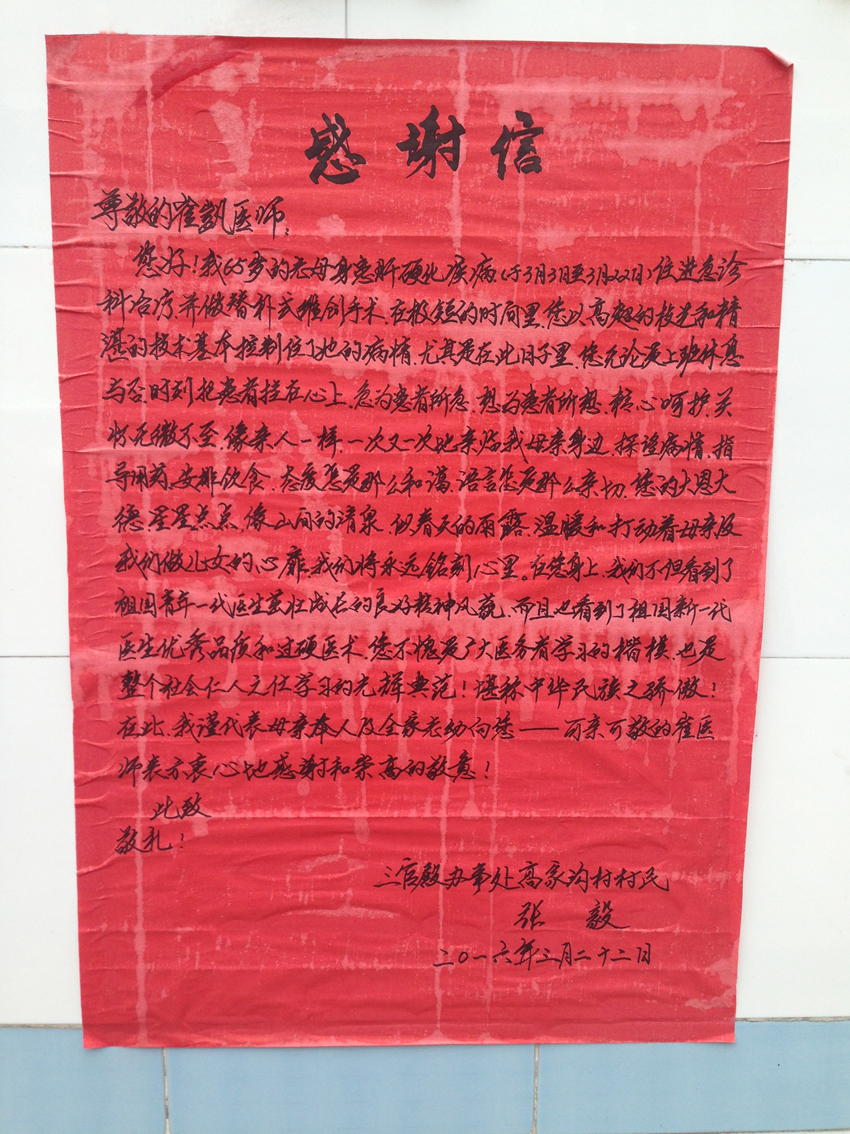 感谢信
尊敬的崔凯医师:
您好!我65岁的老母身患肝硬化疾病(于3月3日至3月22日)住进急诊
科治疗,并做替补式维创手术,在极短的时间里,您以高超的技造和精
湛的技术基本控制住了她的病情,尤其是在此日子里,您无论是上班休息
与否,时刻把患者挂在心上,急为患者所急,想为患者所想,精心呵护,关
怀无微不至,像亲人一样,一次又一次地亲临我母亲身边,探询病情,指
导用药,安排饮食,态度总是那么和蔼,语言总是那么亲切,您的大恩大
德,星星点点,像山间的清泉,似春天的雨露,温暖和打动着母亲及
我们做儿女的心扉,我们将永远铭刻心里。在您身上,我们不但看到了
祖国青年一代医生茁壮成长的良好精神风貌,而且也看到了祖国新一代
医生优秀品质和过硬医术,您不愧是广大医务者学习的楷模,也是
整个社会仁人之仕学习的光辉典范!堪称中华民族之骄傲!
在此,我谨代表母亲本人及全家老幼向您——可亲可敬的崔医
师表示衷心地感谢和崇高的敬意!
此致
敬礼!
三官殿办事处高家沟村村民
张毅
二〇一六年三月二十二日